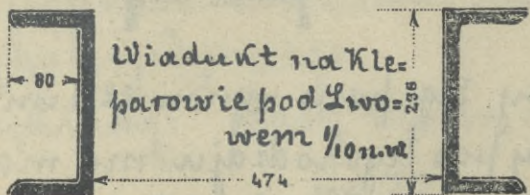 Wiadukt na Kle=
parowie pod Lwo=
wem 1/10 n.w.
80
236
474